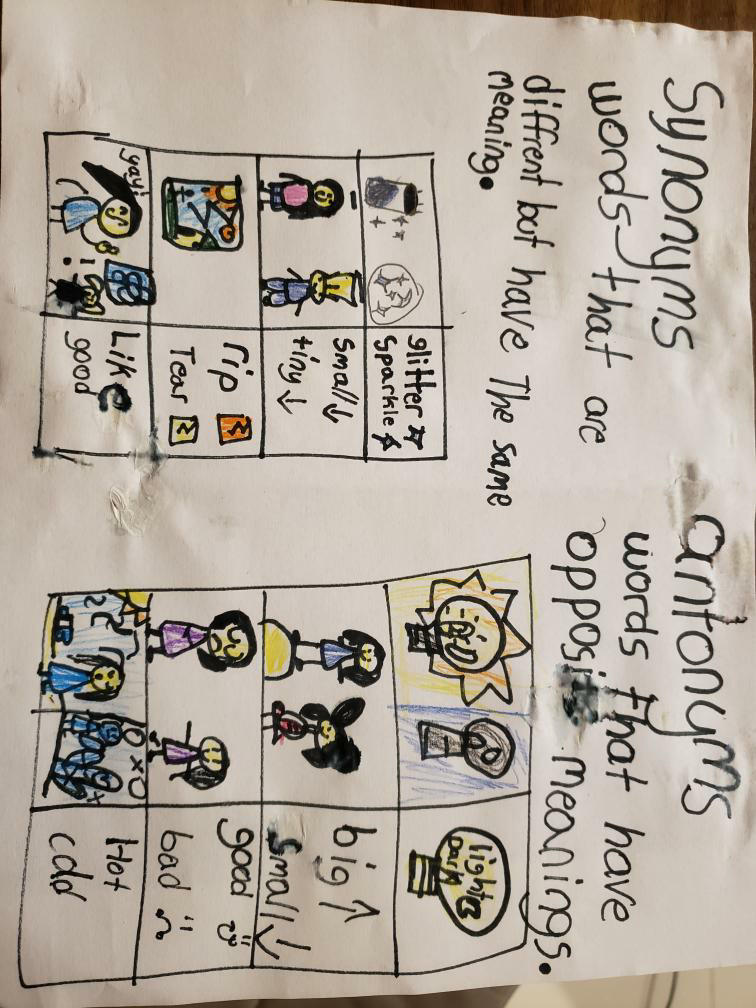 Synonyms
words that are
diffrent but have The same
meaning.
glitter
sparkle
small
tiny
rip
Tear
yay!
Like
good
antonyms
words that have
opposi meanings.
light
Dark
big
small
good
bad
Hot
cold